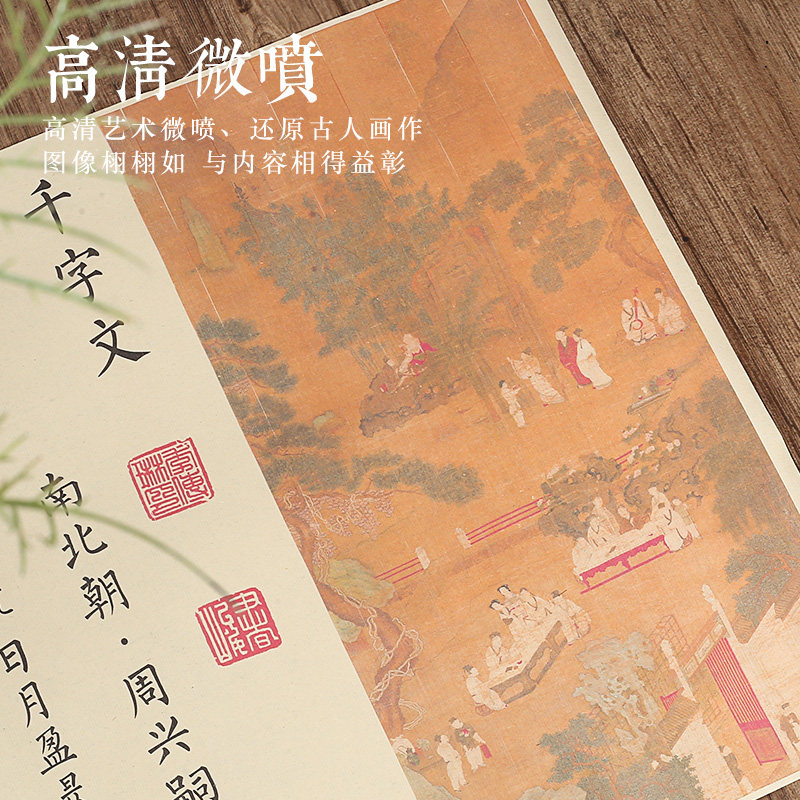 高清微噴
高清艺术微喷、还原古人画作
图像栩栩如 与内容相得益彰
千字文
南北朝·周兴嗣
日月盈